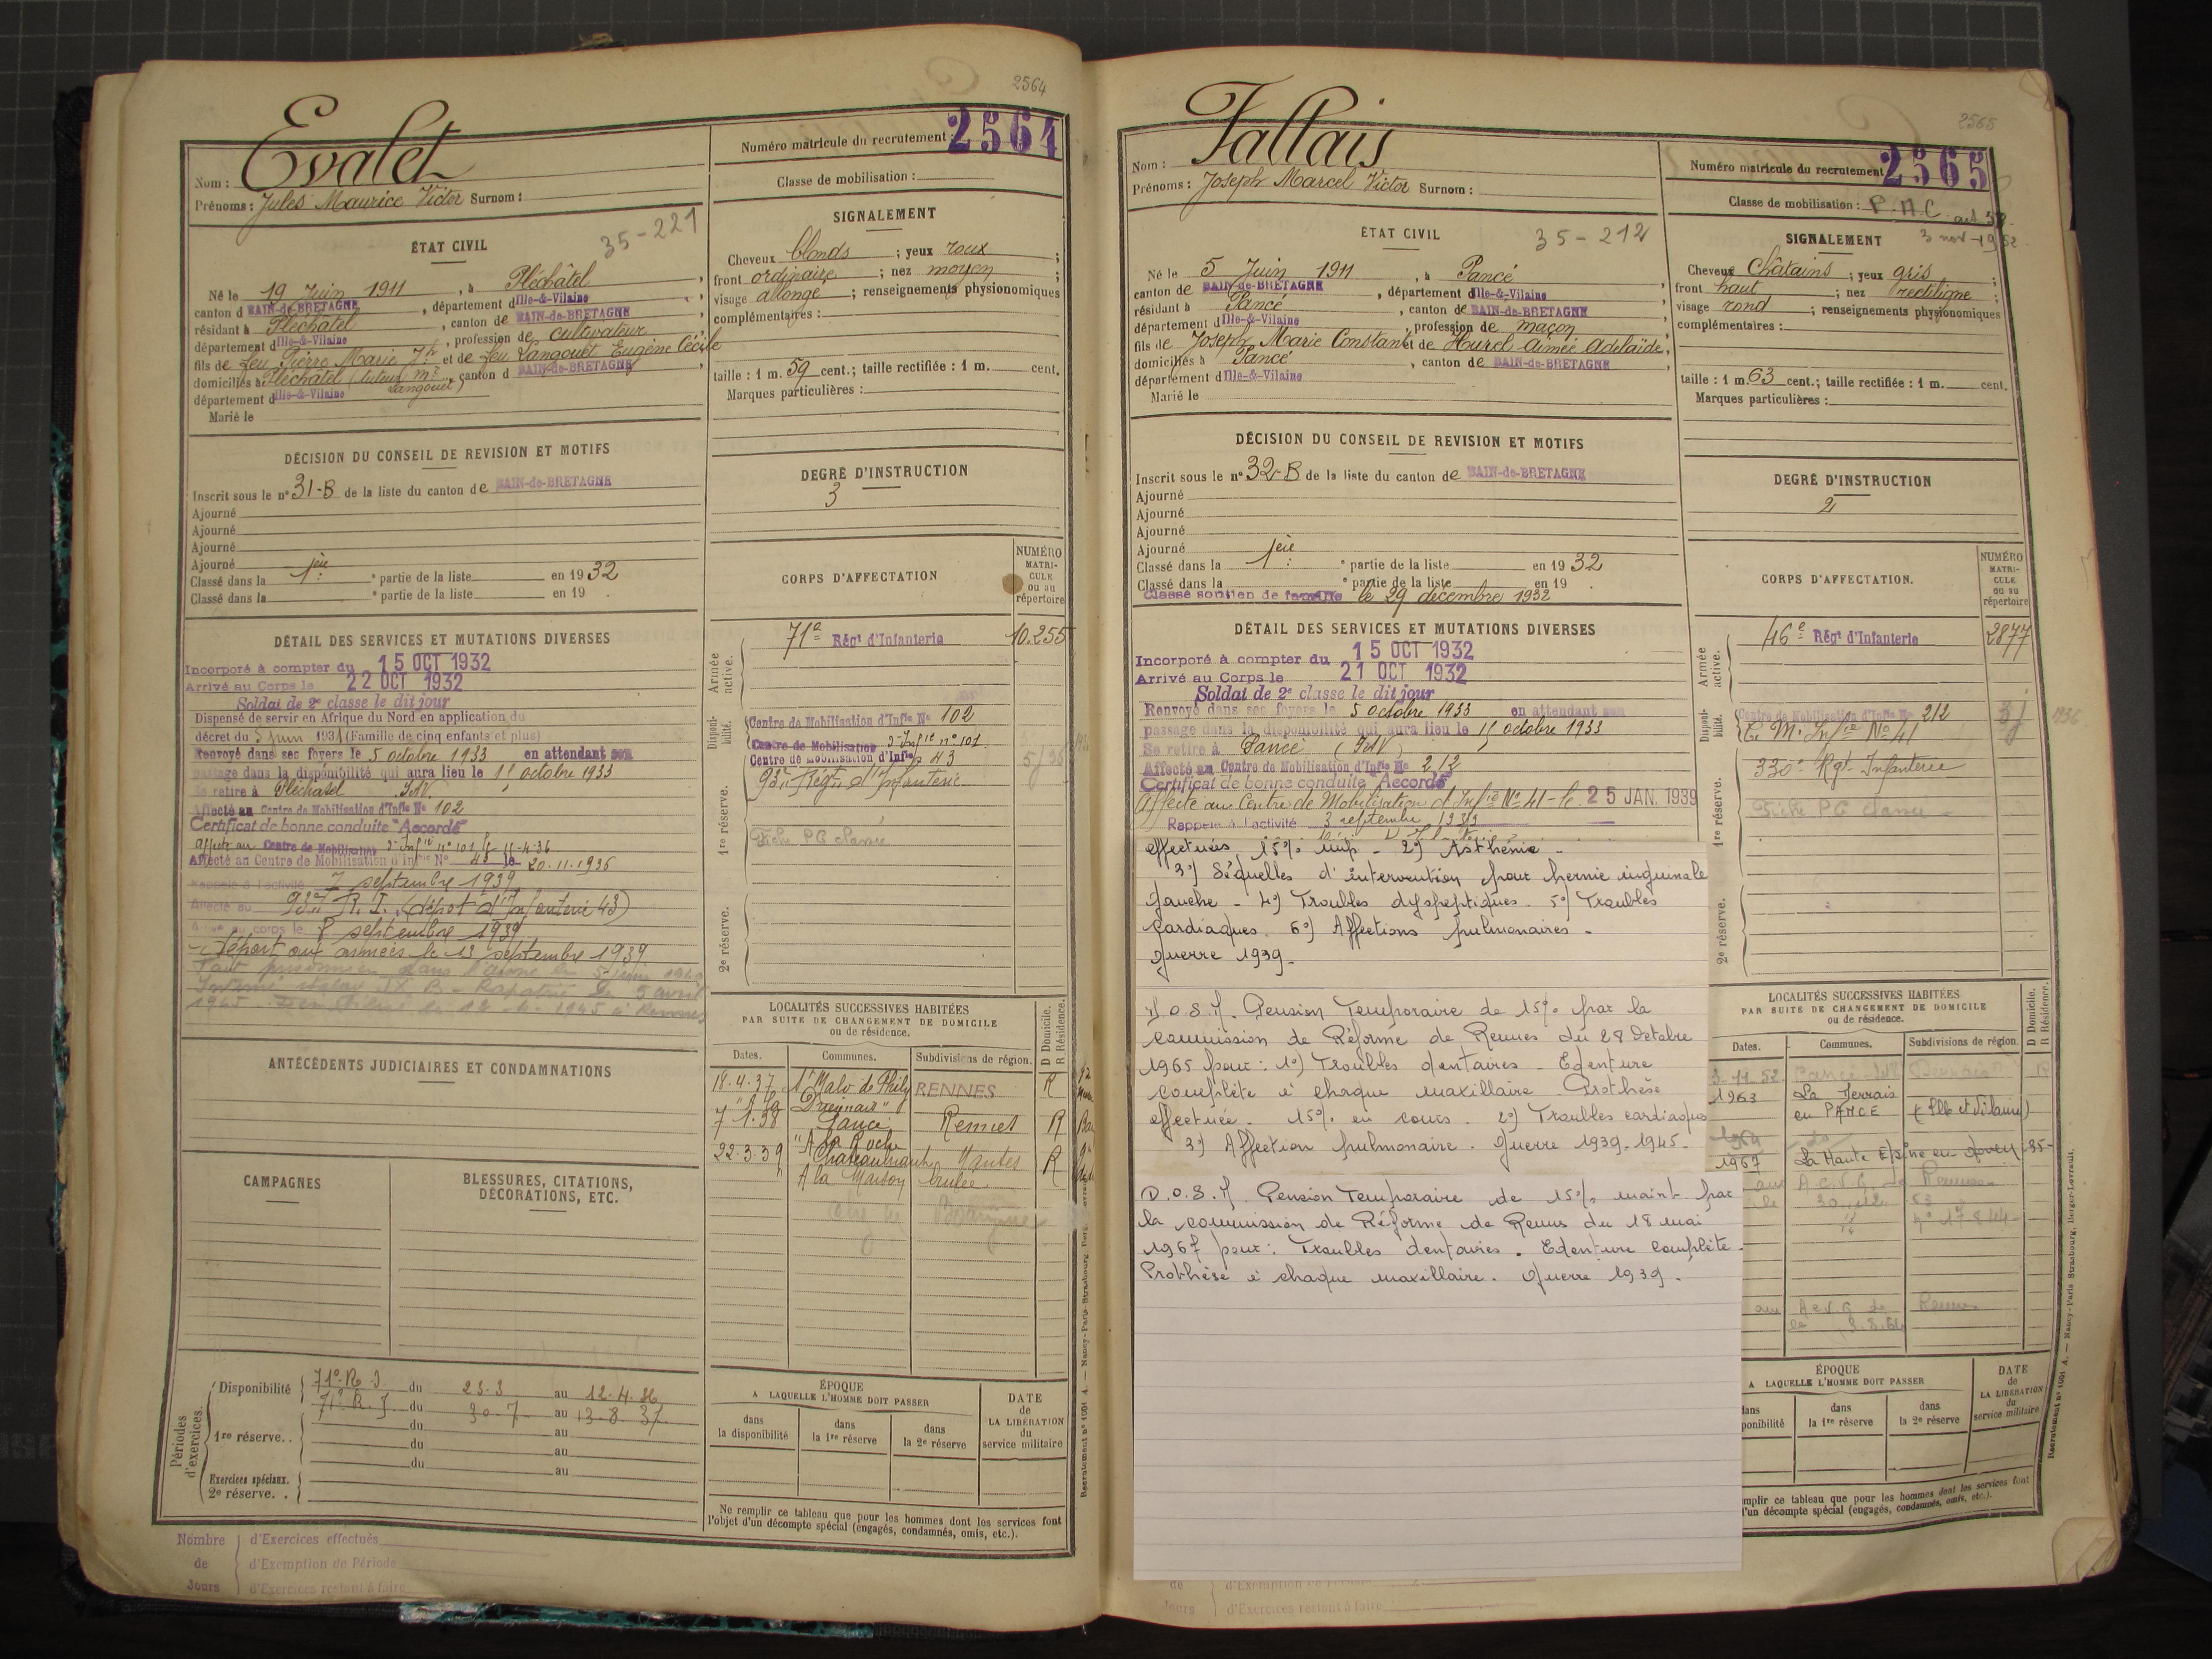 2564
Evalet
Nom :
Prénoms : Jules Maurice Victor Surnom :
Numéro matricule du recrutement : 2564
Classe de mobilisation :
ÉTAT CIVIL
35-221
Né le 19 Juin 1911, à Pléchâtel,
canton d BAIN-de-BRETAGNE, département d Ille-&-Vilaine,
résidant à Pléchâtel, canton de BAIN-de-BRETAGNE,
département d Ille-&-Vilaine, profession de cultivateur
fils de feu Pierre Marie Jh et de feu Langouët Eugène Cécile
domiciliés à Pléchâtel (tuteur mr Langouët), canton d BAIN-de-BRETAGNE,
département d Ille-&-Vilaine
Marié le
SIGNALEMENT
Cheveux blonds ; yeux roux ;
front ordinaire ; nez moyen ;
visage allongé ; renseignements physionomiques
complémentaires :
taille : 1 m. 59 cent.; taille rectifiée : 1 m. cent.
Marques particulières :
DÉCISION DU CONSEIL DE REVISION ET MOTIFS
Inscrit sous le n° 31-B de la liste du canton de BAIN-de-BRETAGNE
Ajourné
Ajourné
Ajourné
Ajourné
Classé dans la 1ère partie de la liste en 1932
Classé dans la partie de la liste en 19 .
DEGRÉ D'INSTRUCTION
3
CORPS D'AFFECTATION
NUMÉRO
MATRI-
CULE
ou au
répertoire
DÉTAIL DES SERVICES ET MUTATIONS DIVERSES
Incorporé à compter du 15 OCT 1932
Arrivé au Corps le 22 OCT 1932
Soldat de 2e classe le dit jour
Dispensé de servir en Afrique du Nord en application du
décret du 5 juin 1931 (Famille de cinq enfants et plus)
Renvoyé dans ses foyers le 5 octobre 1933 en attendant son
passage dans la disponibilité qui aura lieu le 15 octobre 1933
Se retire à Pléchatel I&V.
Affecté au Centre de Mobilisation d'Infie No 102
Certificat de bonne conduite "Accordé"
Affecté au Centre de Mobilisation d'Infie n° 101 le 15-4-36
Affecté au Centre de Mobilisation d'Infie No 43 le 20.11.1936
Rappelé à l'activité 7 septembre 1939
Affecté au 93e R.I. (dépôt d'Infanterie 43)
Arrivé au corps le 8 septembre 1939
Départ aux armées le 13 septembre 1939
Fait prisonnier dans l'Aisne le 5 juin 1940
Interné stalag IX B - Rapatrié le 5 avril
1945. Démobilisé le 12-4-1945 à Rennes
Armée active.
71e Régt d'Infanterie 10.255
Disponibilité.
Centre de Mobilisation d'Infie No 102
Centre de Mobilisation d'Infie n° 101
Centre de Mobilisation d'Infie 43
1re réserve.
93e Régt d'Infanterie
Fiche PG classée
2e réserve.
ANTÉCÉDENTS JUDICIAIRES ET CONDAMNATIONS
LOCALITÉS SUCCESSIVES HABITÉES
PAR SUITE DE CHANGEMENT DE DOMICILE
ou de résidence.
D Domicile.
R Résidence.
Dates. Communes. Subdivisions de région.
18.4.37 St Malo de Phily RENNES R
7.1.38 Lancé Rennes R
22.3.39 "A la Roche" Chateaubriant Nantes R
A la Maison brulée
CAMPAGNES
BLESSURES, CITATIONS,
DÉCORATIONS, ETC.
Périodes d'exercices.
Disponibilité 71e R.I. du 23.3 au 12.4.36
71e R.I. du 30-7 au 13-8-37
1re réserve. . du au
du au
du au
Exercices spéciaux.
2e réserve. .
ÉPOQUE
A LAQUELLE L'HOMME DOIT PASSER
dans la disponibilité
dans la 1re réserve
dans la 2e réserve
DATE
de
LA LIBÉRATION
du
service militaire
Ne remplir ce tableau que pour les hommes dont les services font
l'objet d'un décompte spécial (engagés, condamnés, omis, etc.).
Nombre d'Exercices effectués
de d'Exemption de Période
Jours d'Exercices restant à faire
Recrutement n° 1001 A. — Nancy-Paris-Strasbourg
2565
Fallais
Nom :
Prénoms : Joseph Marcel Victor Surnom :
Numéro matricule du recrutement 2565
Classe de mobilisation : P.A.C. art 58
3 nov 1952
ÉTAT CIVIL
35-212
Né le 5 Juin 1911, à Pancé,
canton de BAIN-de-BRETAGNE, département d Ille-&-Vilaine
résidant à Pancé, canton de BAIN-de-BRETAGNE,
département d Ille-&-Vilaine, profession de maçon
fils de Joseph Marie Constant et de Hurel Aimée Adelaïde,
domiciliés à Pancé, canton de BAIN-de-BRETAGNE,
département d Ille-&-Vilaine
Marié le
SIGNALEMENT
Cheveux châtains ; yeux gris ;
front haut ; nez rectiligne ;
visage rond ; renseignements physionomiques
complémentaires :
taille : 1 m. 63 cent.; taille rectifiée : 1 m. cent.
Marques particulières :
DÉCISION DU CONSEIL DE REVISION ET MOTIFS
Inscrit sous le n° 32-B de la liste du canton de BAIN-de-BRETAGNE
Ajourné
Ajourné
Ajourné
Ajourné
Classé dans la 1ère partie de la liste en 1932
Classé dans la partie de la liste en 19 .
Classé soutien de famille le 29 décembre 1932
DEGRÉ D'INSTRUCTION
2
CORPS D'AFFECTATION.
NUMÉRO
MATRI-
CULE
ou au
répertoire
DÉTAIL DES SERVICES ET MUTATIONS DIVERSES
Incorporé à compter du 15 OCT 1932
Arrivé au Corps le 21 OCT 1932
Soldat de 2e classe le dit jour
Renvoyé dans ses foyers le 5 octobre 1933 en attendant son
passage dans la disponibilité qui aura lieu le 15 octobre 1933
Se retire à Pancé (I&V)
Affecté au Centre de Mobilisation d'Infie No 212
Certificat de bonne conduite "Accordé"
Affecté au Centre de Mobilisation d'Infie No 41 - le 25 JAN. 1939
Rappelé à l'activité 3 septembre 1939
effectuées 15% - 2°) Asthénie -
3°) Séquelles d'intervention pour hernie inguinale
gauche - 4°) Troubles dyspeptiques. 5°) Troubles
cardiaques. 6°) Affections pulmonaires -
guerre 1939.
D.O.S.M. Pension Temporaire de 15% par la
commission de Réforme de Rennes du 28 Octobre
1965 pour : 1°) Troubles dentaires - Edenture
complète à chaque maxillaire. Prothèse
effectuée. 15% en cours. 2°) Troubles cardiaques
3°) Affection pulmonaire. Guerre 1939-1945.
D.O.S.M. Pension Temporaire de 15% maint. par
la commission de Réforme de Rennes du 18 mai
1967 pour : Troubles dentaires. Edenture complète.
Prothèse à chaque maxillaire. Guerre 1939.
Armée active.
46e Régt d'Infanterie 2877
Disponibilité.
Centre de Mobilisation d'Infie No 212
C. M. Infie No 41
1re réserve.
330e Rgt Infanterie
Fiche PG classée
2e réserve.
LOCALITÉS SUCCESSIVES HABITÉES
PAR SUITE DE CHANGEMENT DE DOMICILE
ou de résidence.
D Domicile.
R Résidence.
Dates. Communes. Subdivisions de région.
3-11-52
1963 La Terrais en PANCE (Ille et Vilaine)
1964 do
1967 La Haute Epine en 35-
au A.C.V.G. de Rennes
au A.C.V.G. de Rennes
le 3.8.64
ÉPOQUE
A LAQUELLE L'HOMME DOIT PASSER
dans
ponibilité
dans
la 1re réserve
dans
la 2e réserve
DATE
de
LA LIBÉRATION
du
service militaire
emplir ce tableau que pour les hommes dont les services font
d'un décompte spécial (engagés, condamnés, omis, etc.).
de d'Exemption de Période
Jours d'Exercices restant à faire
Recrutement n° 1001 A. — Nancy-Paris-Strasbourg, Berger-Levrault.